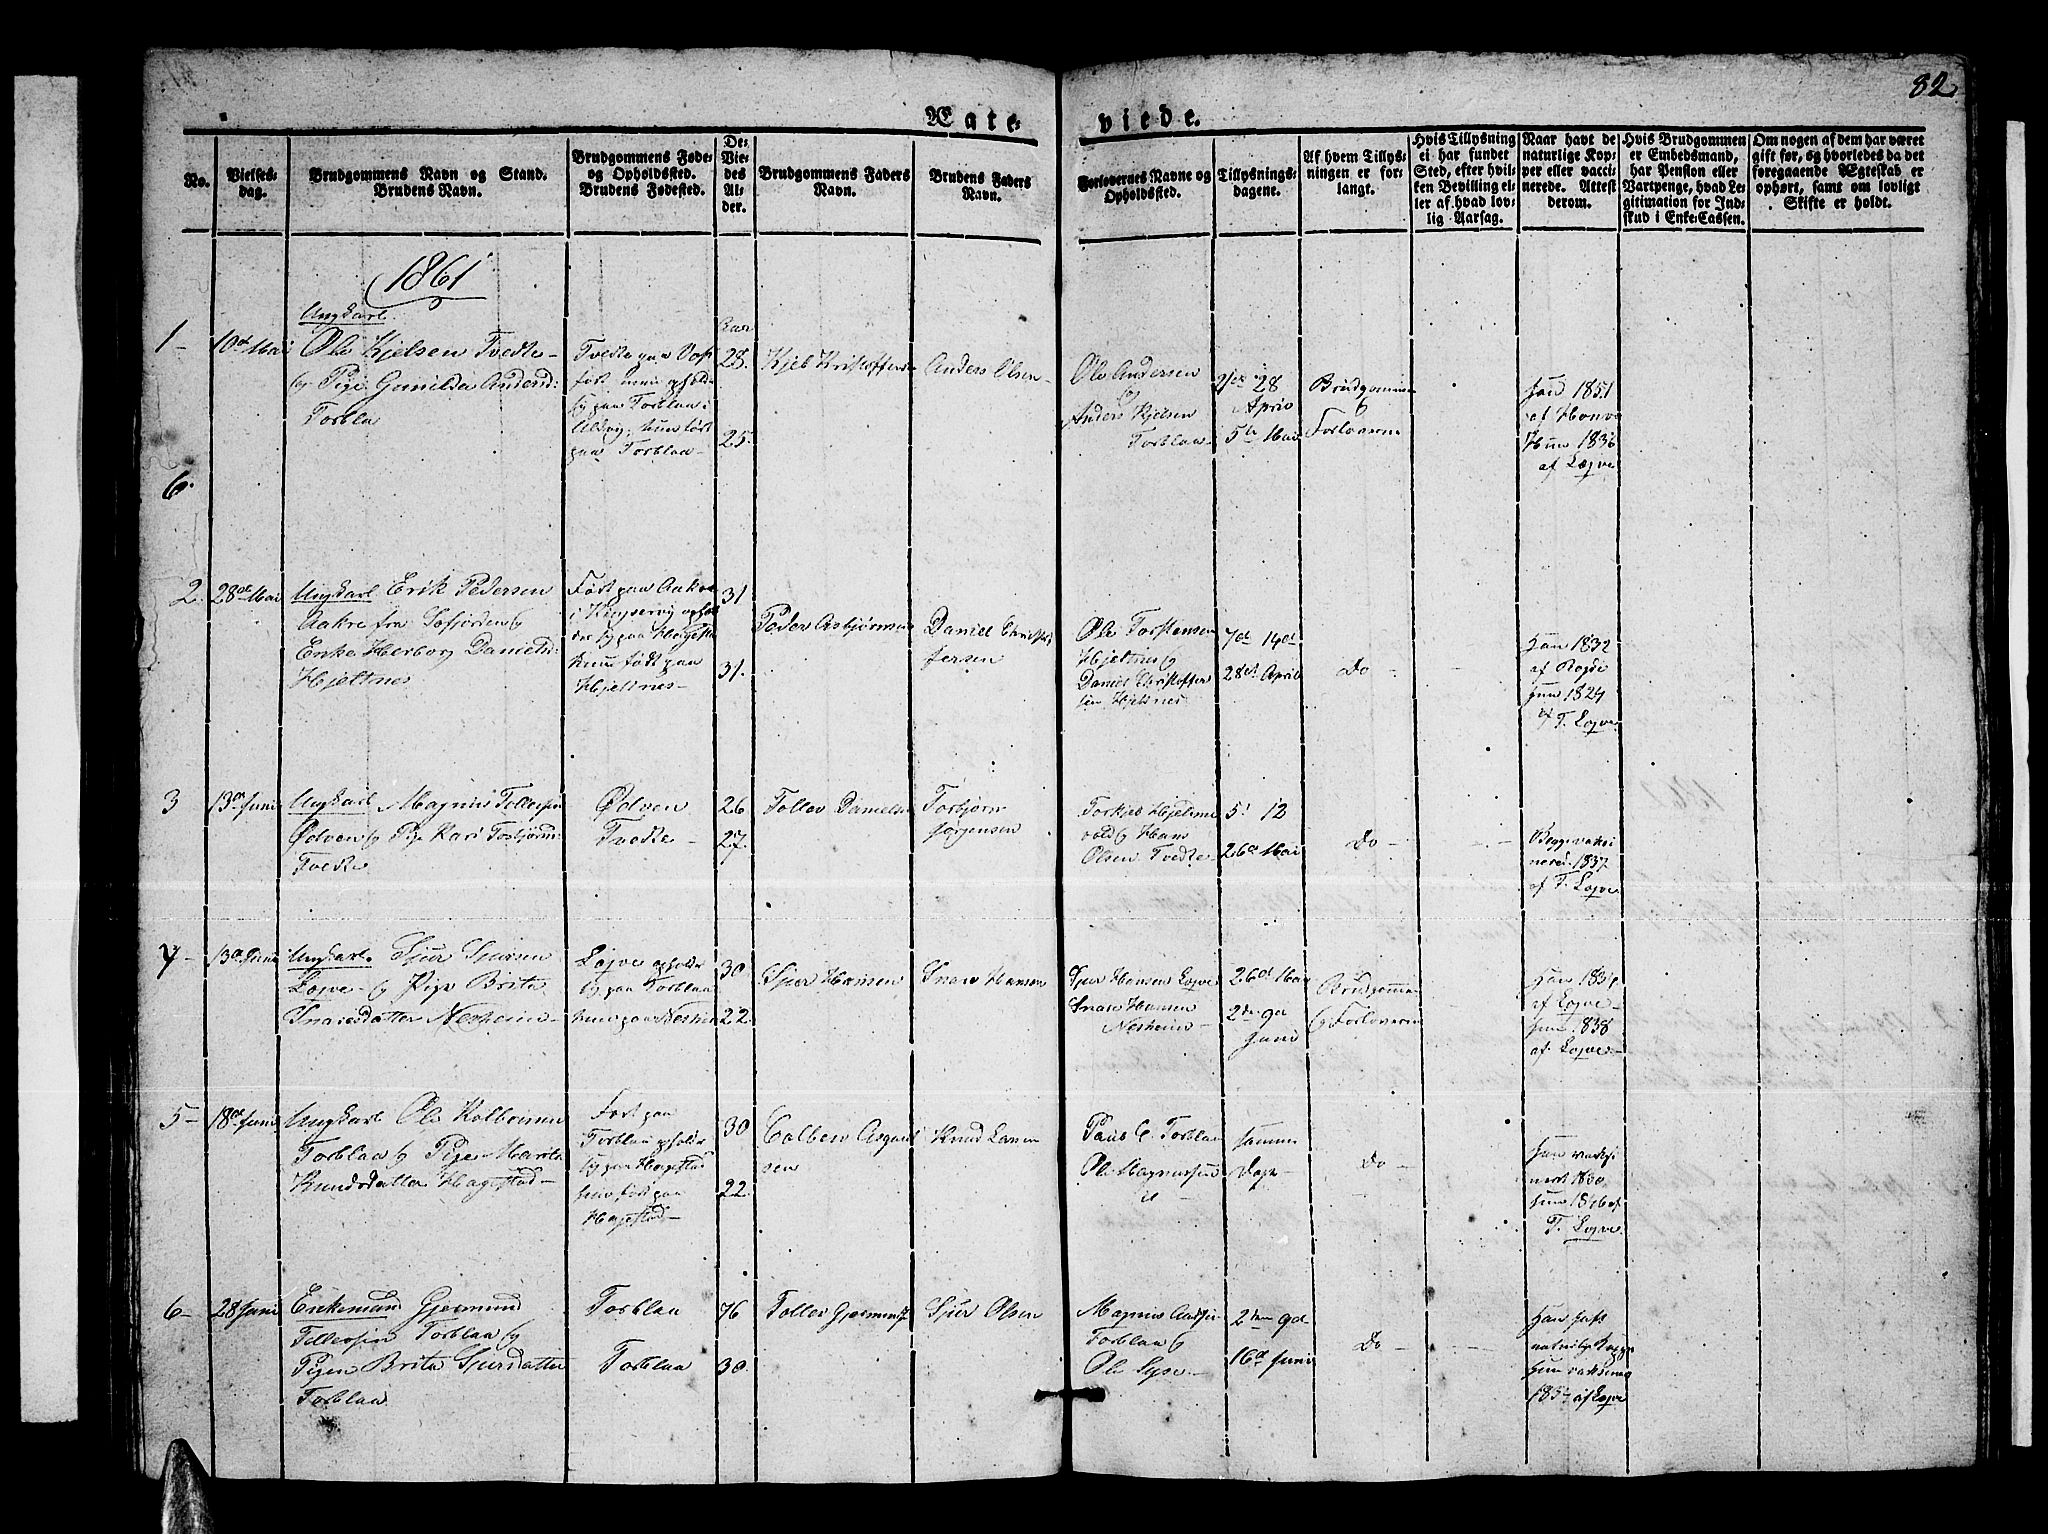 82
Ægte viede.
No.
Vielses-
dag.
Brudgommens Navn og Stand.
Brudens Navn.
Brudgommens Føde-
og Opholdssted.
Brudens Fødested.
De
Vie-
des
Al-
der.
Brudgommens Faders
Navn.
Brudens Faders
Navn.
Forlovernes Navne og
Opholdssted.
Tillysnings-
dagene.
Af hvem Tillys-
ningen er for-
langt.
Hvis Tillysning
ei har fundet
Sted, efter hvil-
ken Bevilling el-
ler af hvad lov-
lig Aarsag.
Naar havt de
naturlige Kop-
per eller vacci-
nerede. Attest
derom.
Hvis Brudgommen
er Embedsmand,
har Pension eller
Vartpenge, hvad Le-
gitimation for Ind-
skud i Enke-Cassen.
Om nogen af dem har været
gift før, og hvorledes da det
foregaaende Ægteskab er
ophørt, samt om lovligt
Skifte er holdt.
1861
1 -
10de Mai
Ungkarl
Ole Kjelsen Tvedte -
og Pige Gunilda Andersd:
Torbla
Tvedte paa Vos
født men ophold
sig paa Torblaa i
Ulvig, hun født
paa Torblaa -
Aar
28.
25.
Kjel Kristoffers
Anders Olsen -
Ole Andersen
og
Anders Kjelsen
Torblaa -
28
April
5te Mai
Brudgommen
og
Forloverne
Han 1851
af
Hun 1836
af Lojve
6.
2.
28de Mai
Ungkarl Erik Pedersen
Aakre fra Sefjorden og
Enke Herborg Daniels:
Hjeltnes
Født paa Aakre
i Kinservig ophol
der sig paa Hagesta
hun født paa
Hjeltnes -
31
31.
Peder Asbjørnsen
Daniel Christo
fersen
Ole Torstensen
Hjeltnes og
Daniel Christoffer
sen Hjeltnes
7de 14de
28de April
Do -
Han 1832
af
Hun 1824
af T. Lojve
3
13de Juni
Ungkarl Magnus Tollevsen
Ødven og Pige Kari Torbjørns:
Tvedte
Ødven
Tvedte -
26
27.
Tollev Danielsen
Torbjørn
Jørgensen
Torkjel Hjeltne
vold og Hans
Olsen Tvedte -
5 12
26de Mai
Do -
Begge vaksi
nered 1837
af T. Lojve
4 -
13de Juni
Ungkarl Sjur Sjursen
Lojve - og Pige Brita
Snaresdatter Nesheim -
Lojve opholder
sig paa Torblaa
hun paa Neshei
30
22.
Sjur Hansen
Snare Hansen
Sjur Hansen Lojve
Snare Hansen
Nesheim -
26de Mai
2den 9de
Juni
Brudgommen
og Forloverne
Han
af Lojve -
Hun 1838
af Lojve -
5 -
18de Juni
Ungkarl Ole Kolbeinsen
Torblaa og Pige Marita
Knudsdatter Hagestad -
Født paa
Torblaa opholder
sig paa Hagestad
hun født paa
Hagestad -
30
22.
Colben Asgaut
sen
Knud Larsen
Paul C. Torblaa
Ole Magnussen
samme
Dage -
Do -
Han vaksi
neret 1830
Hun 1846 af
T. Lojve
6 -
28 Juni
Enkemand Gjermund
Tollevsen Torblaa og
Pigen Brita Sjursdatter
Torblaa
Torblaa
Torblaa
76
30
Tollev Gjermunds
Sjur Olsen
Magnus
Torblaa og
Ole Lyse -
2den 9de
16de Juni
Do -
Han haft
naturlige Kopper
Hun vaksineret
af Lojve